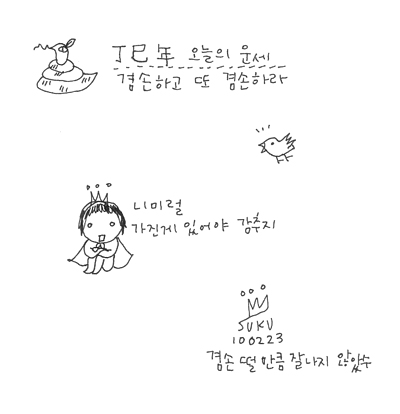 丁巳年 오늘의 운세
겸손하고 또 겸손하라
니미럴
가진게 있어야 감추지
SUKU
100223
겸손 떨 만큼 잘나지 않았수